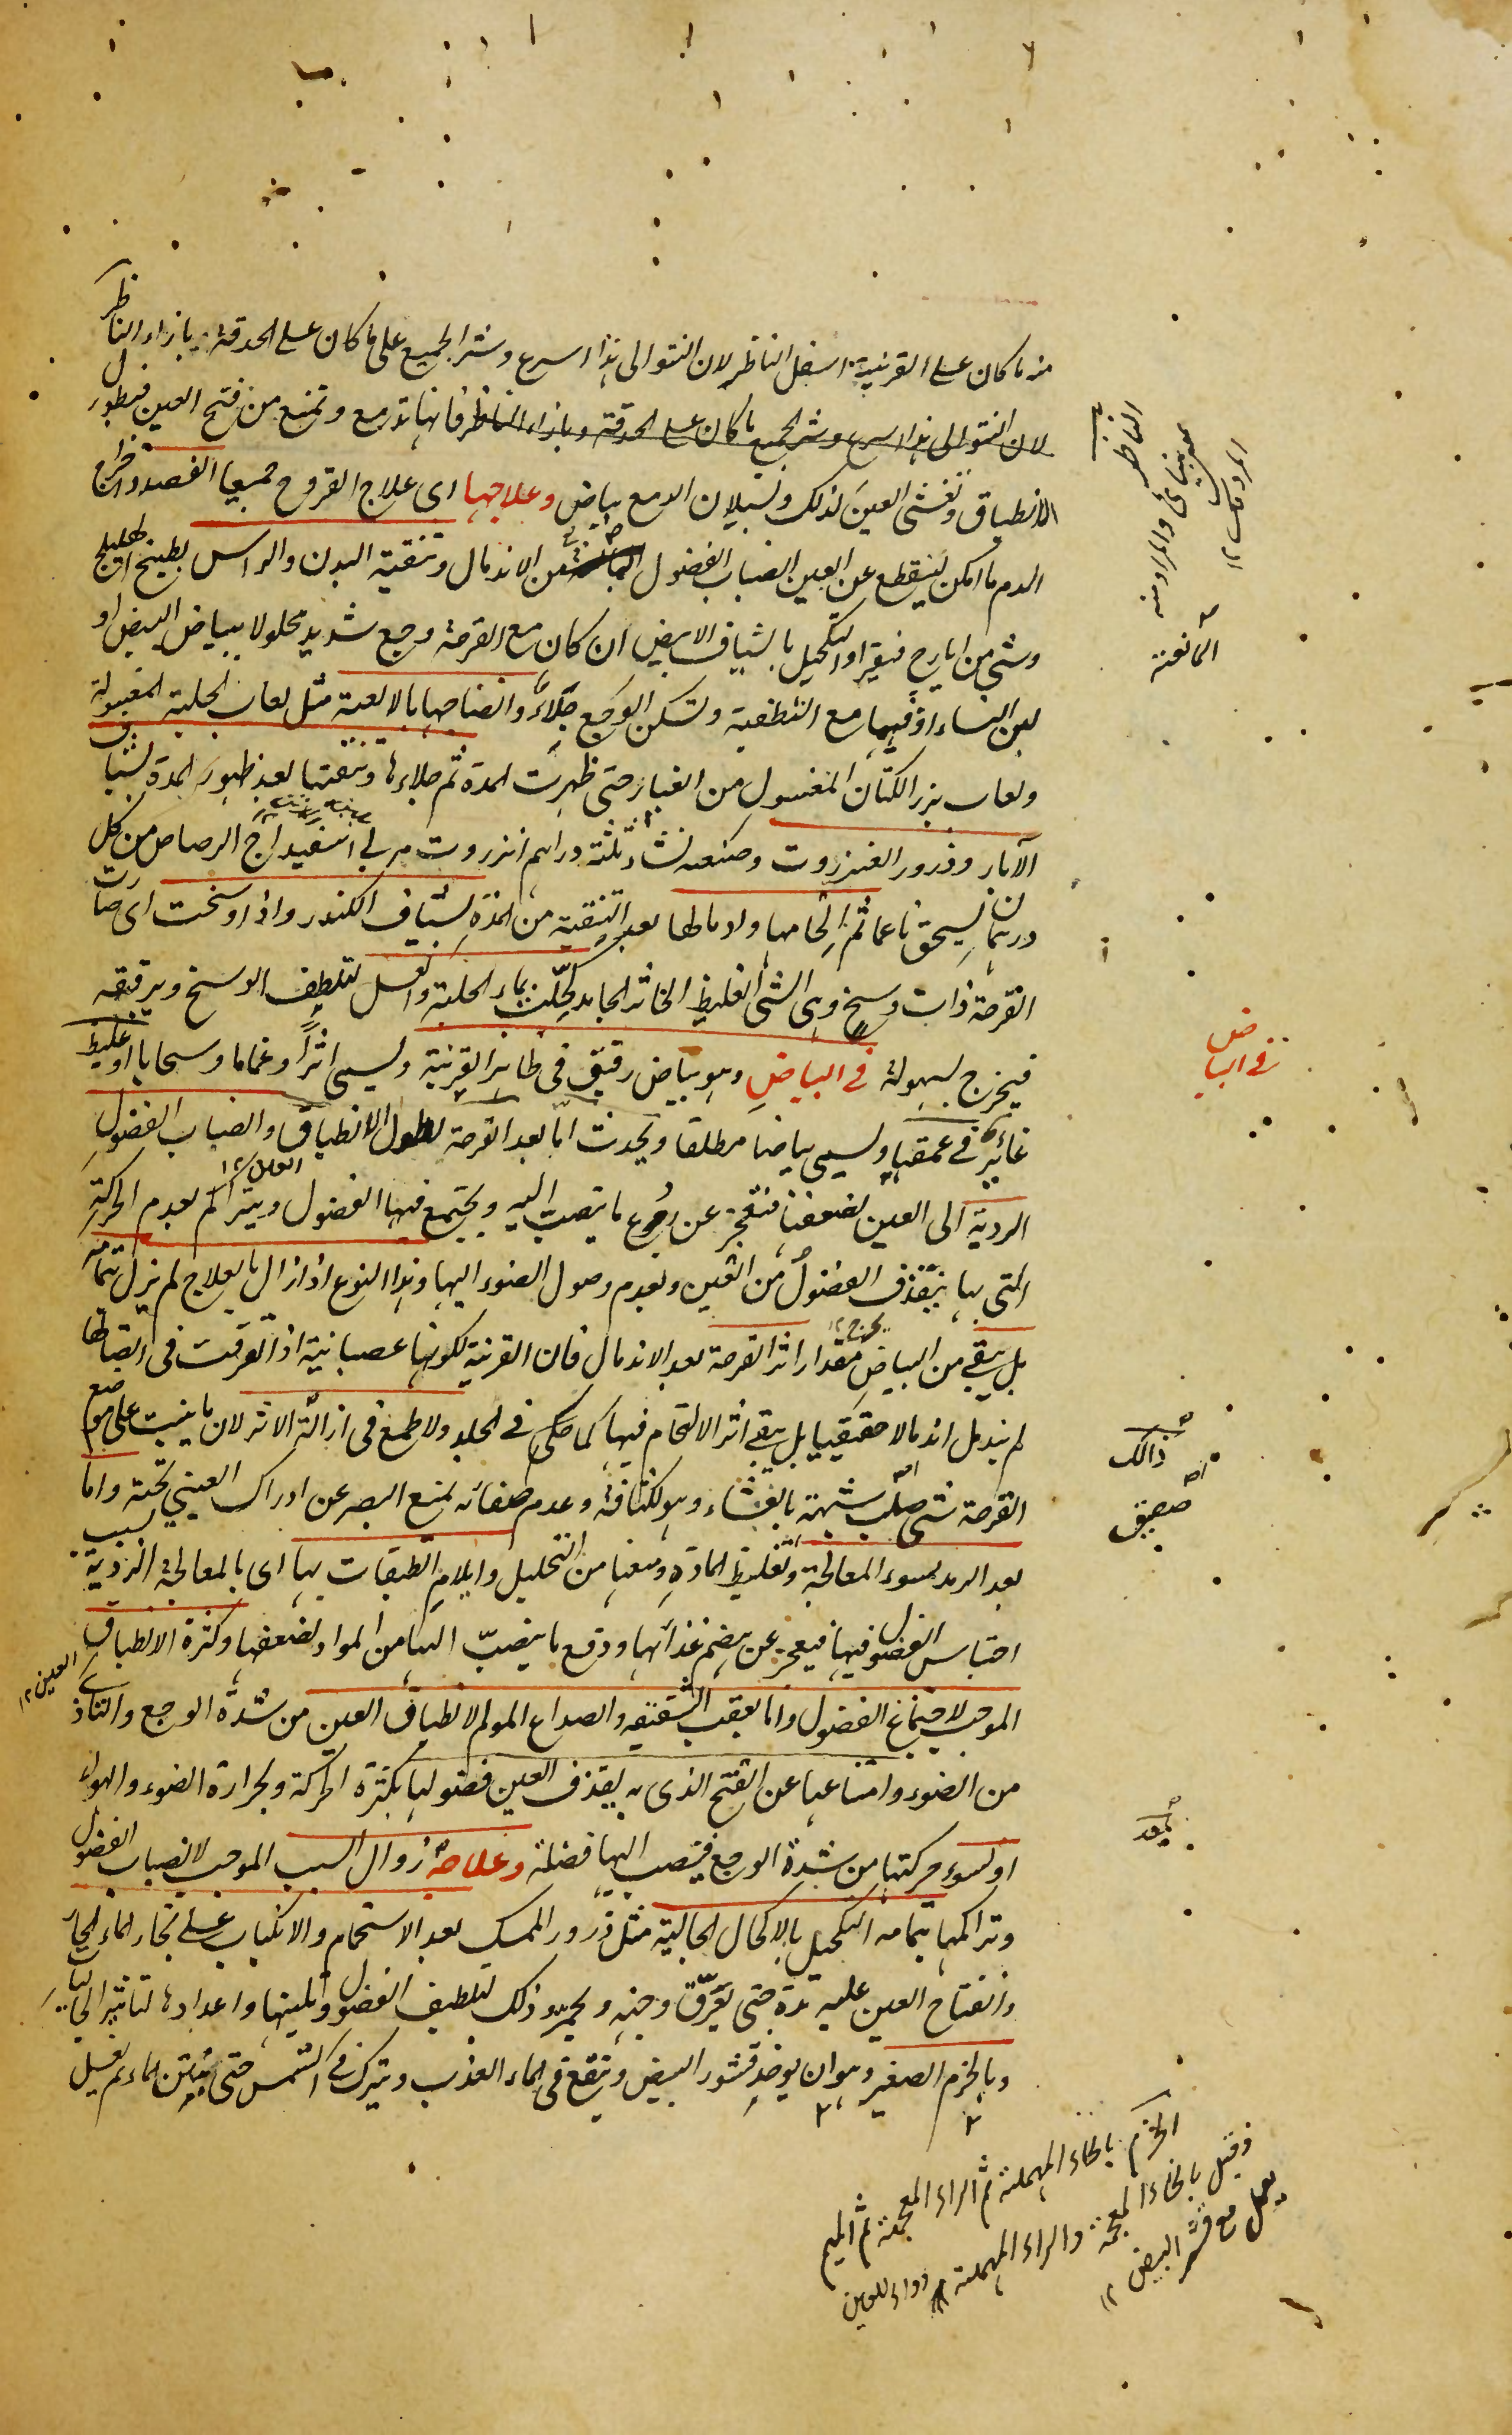 منه ما كان على القرنية اسفل الناظر لان النتو الى هذا اسرع وشر الجميع على ما كان على الحدقة بازاء الناظر
لان النتو الى هذا اسرع وشر الجميع ما كان على الحدقة وبازاء الناظر فانها تدمع وتمنع من فتح العين فيطول
الانطباق وتغشى العين لذلك ولسيلان الدمع بياض وعلاجها اى علاج القروح جميعا الفصد واخراج
الدم ما امكن لينقطع عن العين انصباب الفضول عن الاندمال وتنقية البدن والراس بطبيخ الهليلج
وشى من ايارج فيقرا والتكحيل بالشياف الابيض ان كان مع القرحة وجع شديد محلولا ببياض البيض او
لبن النساء او فيهما مع التطفية وتسكن الوجع جلاء وانضاجها بالالعبة مثل لعاب الحلبة المغسولة
ولعاب بزر الكتان المغسول من الغبار حتى ظهرت المدة ثم جلاءها وتنقيتها بعد ظهور المدة بشياف
الآبار وذرور العنزروت وصنعته نشا ثلثة دراهم انزروت مربى اسفيداج الرصاص من كل
درهمان يسحق ناعما ثم الحامها وادمالها بعد التنقية من المدة بشياف الكندر واذا وسخت اى صارت
القرحة ذات وسخ وهى الشى الغليظ الخاثر الجامد كحلت بماء الحلبة والعسل لتلطف الوسخ وترقيقه
فيخرج بسهولة فى البياض وهو بياض رقيق فى ظاهر القرنية ويسمى اثرا وغماما وسحابا او غليظ
غائر فى عمقها ويسمى بياضا مطلقا ويحدث اما بعد القرحة لطول الانطباق وانصباب الفضول
الردية الى العين لضعفها فتعجز عن دفع ما ينصب اليه ويجتمع فيها الفضول ويتراكم لعدم الحركة
التى بها ينقذف الفضول من العين ولعدم وصول الضوء اليها وهذا النوع اذا زال بالعلاج لم يزل بتمامه
بل يبقى من البياض مقدار اثر القرحة بعد الاندمال فان القرنية لكونها عصبانية اذا تفرقت فى اتصالها
لم يندمل اندمالا حقيقيا بل يبقى اثر الالتحام فيها كما حكى فى الجلد ولا طمع فى ازالة الاثر لان ما ينبت على موضع
القرحة شى صلب شبيهة بالغشاء وهو لكثافته وعدم صفائه يمنع البصر عن ادراك العينى تحته واما
بعد الرمد لسوء المعالجة وتغليظ المادة ومنعها من التحليل وايلام الطبقات بها اى بالمعالجة الردية بسبب
احتباس الفضول فيها فيعجز عن هضم غذائها ودفع ما ينصب اليها من المواد لضعفها وكثرة الانطباق
الموجب لاجتماع الفضول واما بعقب الشقيقة والصداع المولم لانطباق العين من شدة الوجع والتاذى
من الضوء وامتناعها عن الفتح الذى به يقذف العين فضولها بكثرة الحركة وبحرارة الضوء والهواء
او لسوء حركتها من شدة الوجع فينصب اليها فضلة وعلاجه زوال السبب الموجب لانصباب الفضول
وتراكمها بتمامه التكحيل بالاكحال الجالية مثل ذرور المسك بعد الاستحمام والانكباب على بخار الماء الحار
وانفتاح العين عليه مدة حتى يعرق وجهه ويحمر وذلك لتلطيف الفضول وتليينها واعدادها لتاثير الجالية
وبالخزم الصغير وهو ان يوخذ قشور البيض وينقع فى الماء العذب ويترك فى الشمس حتى ينتن الماء ثم يغسل
المانعة
فى البياض
ذالك
صفيق
يبعد
العين ١٢
الحزم بالحاء المهملة ثم الزاء المعجمة ثم الميم
وقيل بالخاء المعجمة والراء المهملة دواء للعين
يعمل مع قشر البيض ١٢